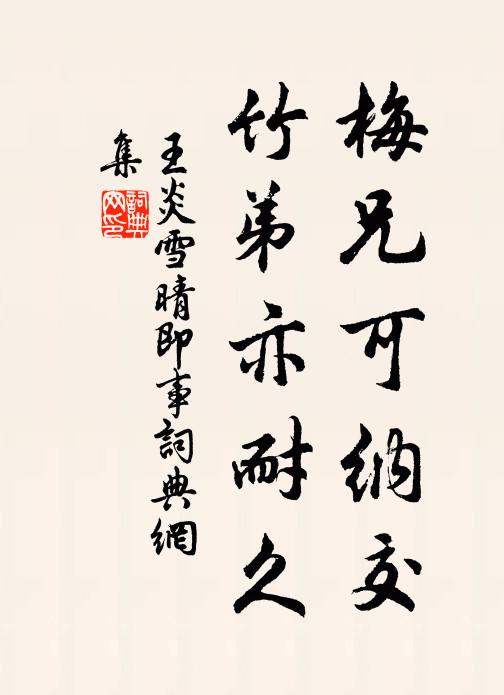 梅兄可納交
竹弟亦耐久
王炎雪晴即事詞典網
集
詞典
网印